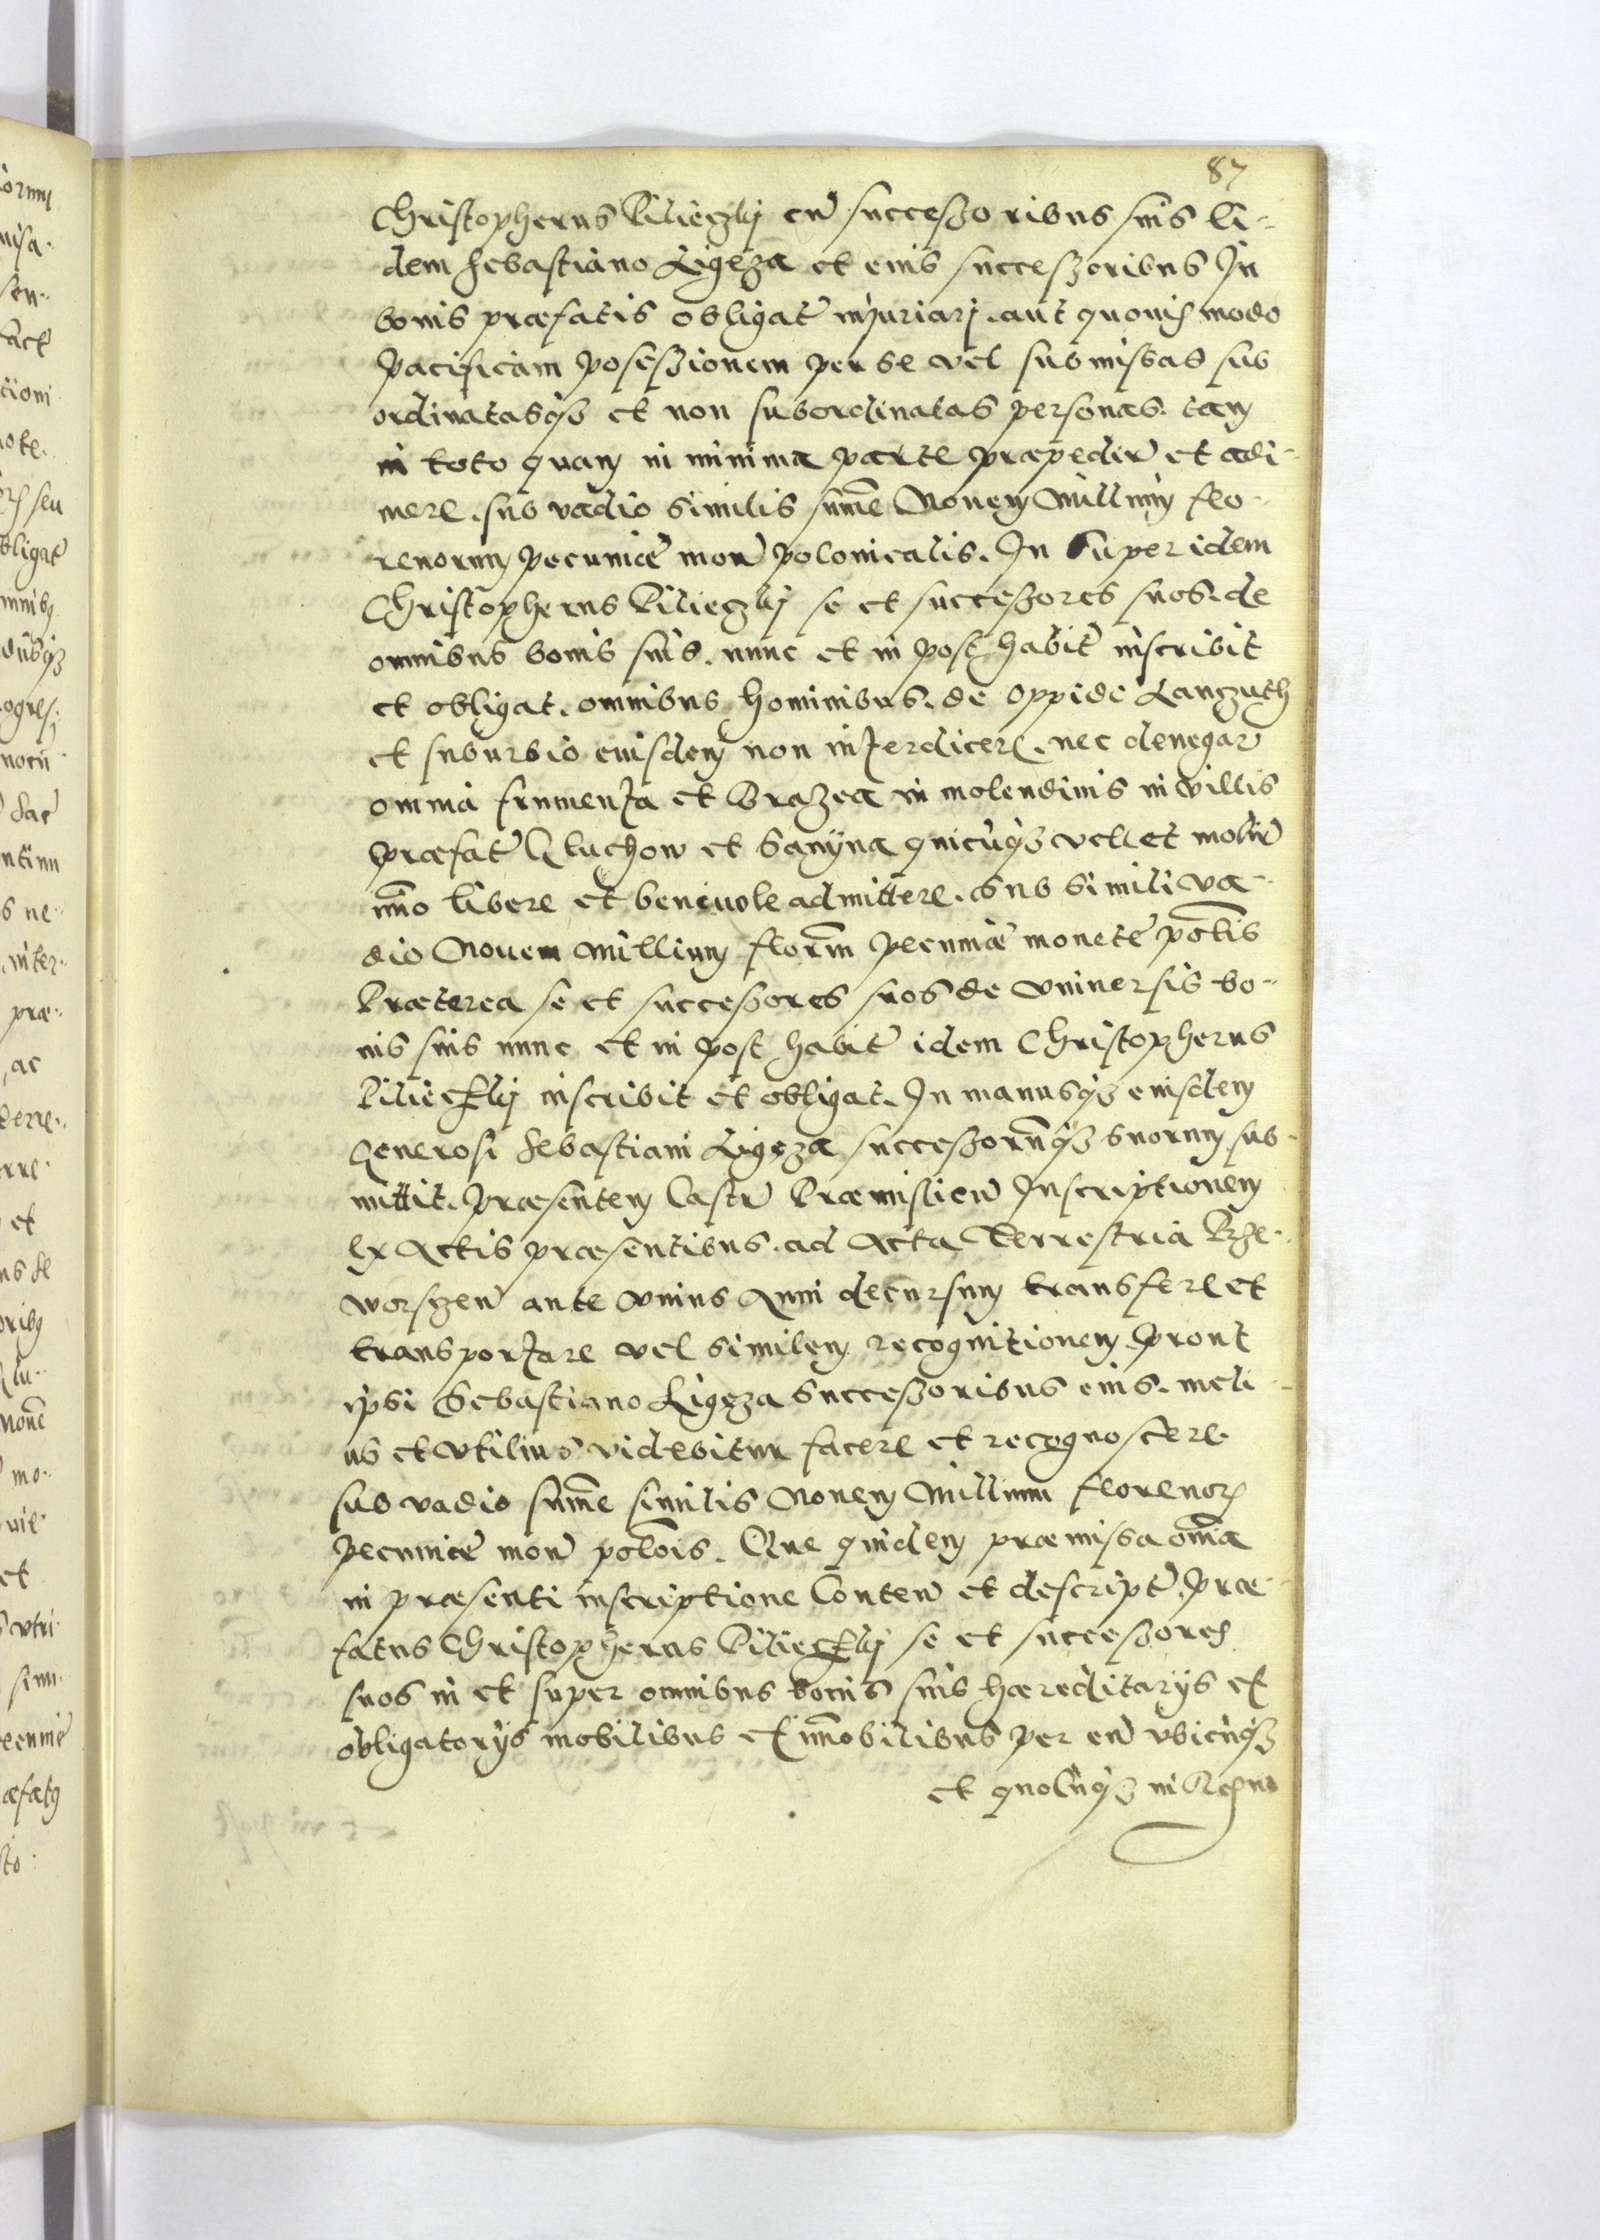 87
Christopherus Pilieczkij cu successoribus suis Ei-
dem Sebastiano Ligęza et eius successoribus In
bonis præfatis obligat iniuriari. aut quouis modo
pacificam possessionem per se vel submissas sub
ordinatasq3 et non subordinatas personas. tam
in toto quam in minima parte præpedire et adi-
mere. sub vadio similis summe Nouem Millium flo-
renorum pecuniæ mone polonicalis. In super idem
Christopherus Pilieczkij se et successores suos. de
omnibus bonis suis. nunc et in post habit inscribit
et obligat. omnibus hominibus. de oppido Lanzuth
et suburbio eiusdem non interdicere. nec denegar
omnia frumenta et brazea in molendinis in villis
præfat Gluchow et Sanyna quicuq3 vellet molire
immo libere et beneuole admittere. sub simili va-
dio Nouem Millium florem pecuniæ monete polis
Præterea se et successores suos de vniuersis bo-
nis suis nunc et in post habit idem Christopherus
Pilieczkij inscribit et obligat. In manusq3 eiusdem
Generosi Sebastiani Ligęza successorumq3 suorum sub-
mittit. præsentem Castr Præmislien Inscriptionem
ex Actis præsentibus. ad Acta Terrestria Prze-
worscen ante vnius Anni decursum transferre et
transportare vel similem recognitionem prout
ipsi Sebastiano Ligęza successoribus eius. meli-
us et vtilius videbitur facere et recognoscere
sub vadio summe similis Nouem Millium florenor
pecuniæ mone polois. Que quidem præmissa omia
in præsenti inscriptione Conten et descript. præ-
fatus Christopherus Pilieczkij se et successores
suos in et super omnibus bonis suis hæreditarijs et
obligatorijs mobilibus et immobilibus per eu vbicuq3
et quolibq3 in Regno